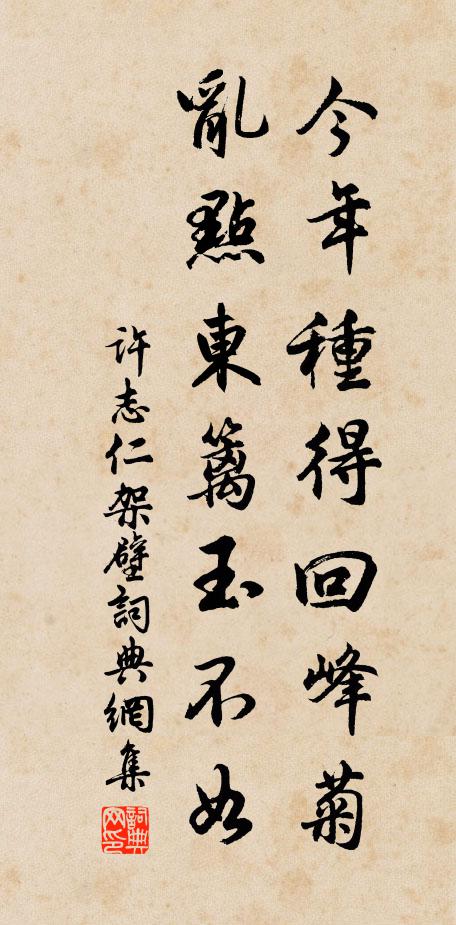 今年種得回峰菊
亂點東籬玉不如
許志仁架壁詞典網集
詞典網印